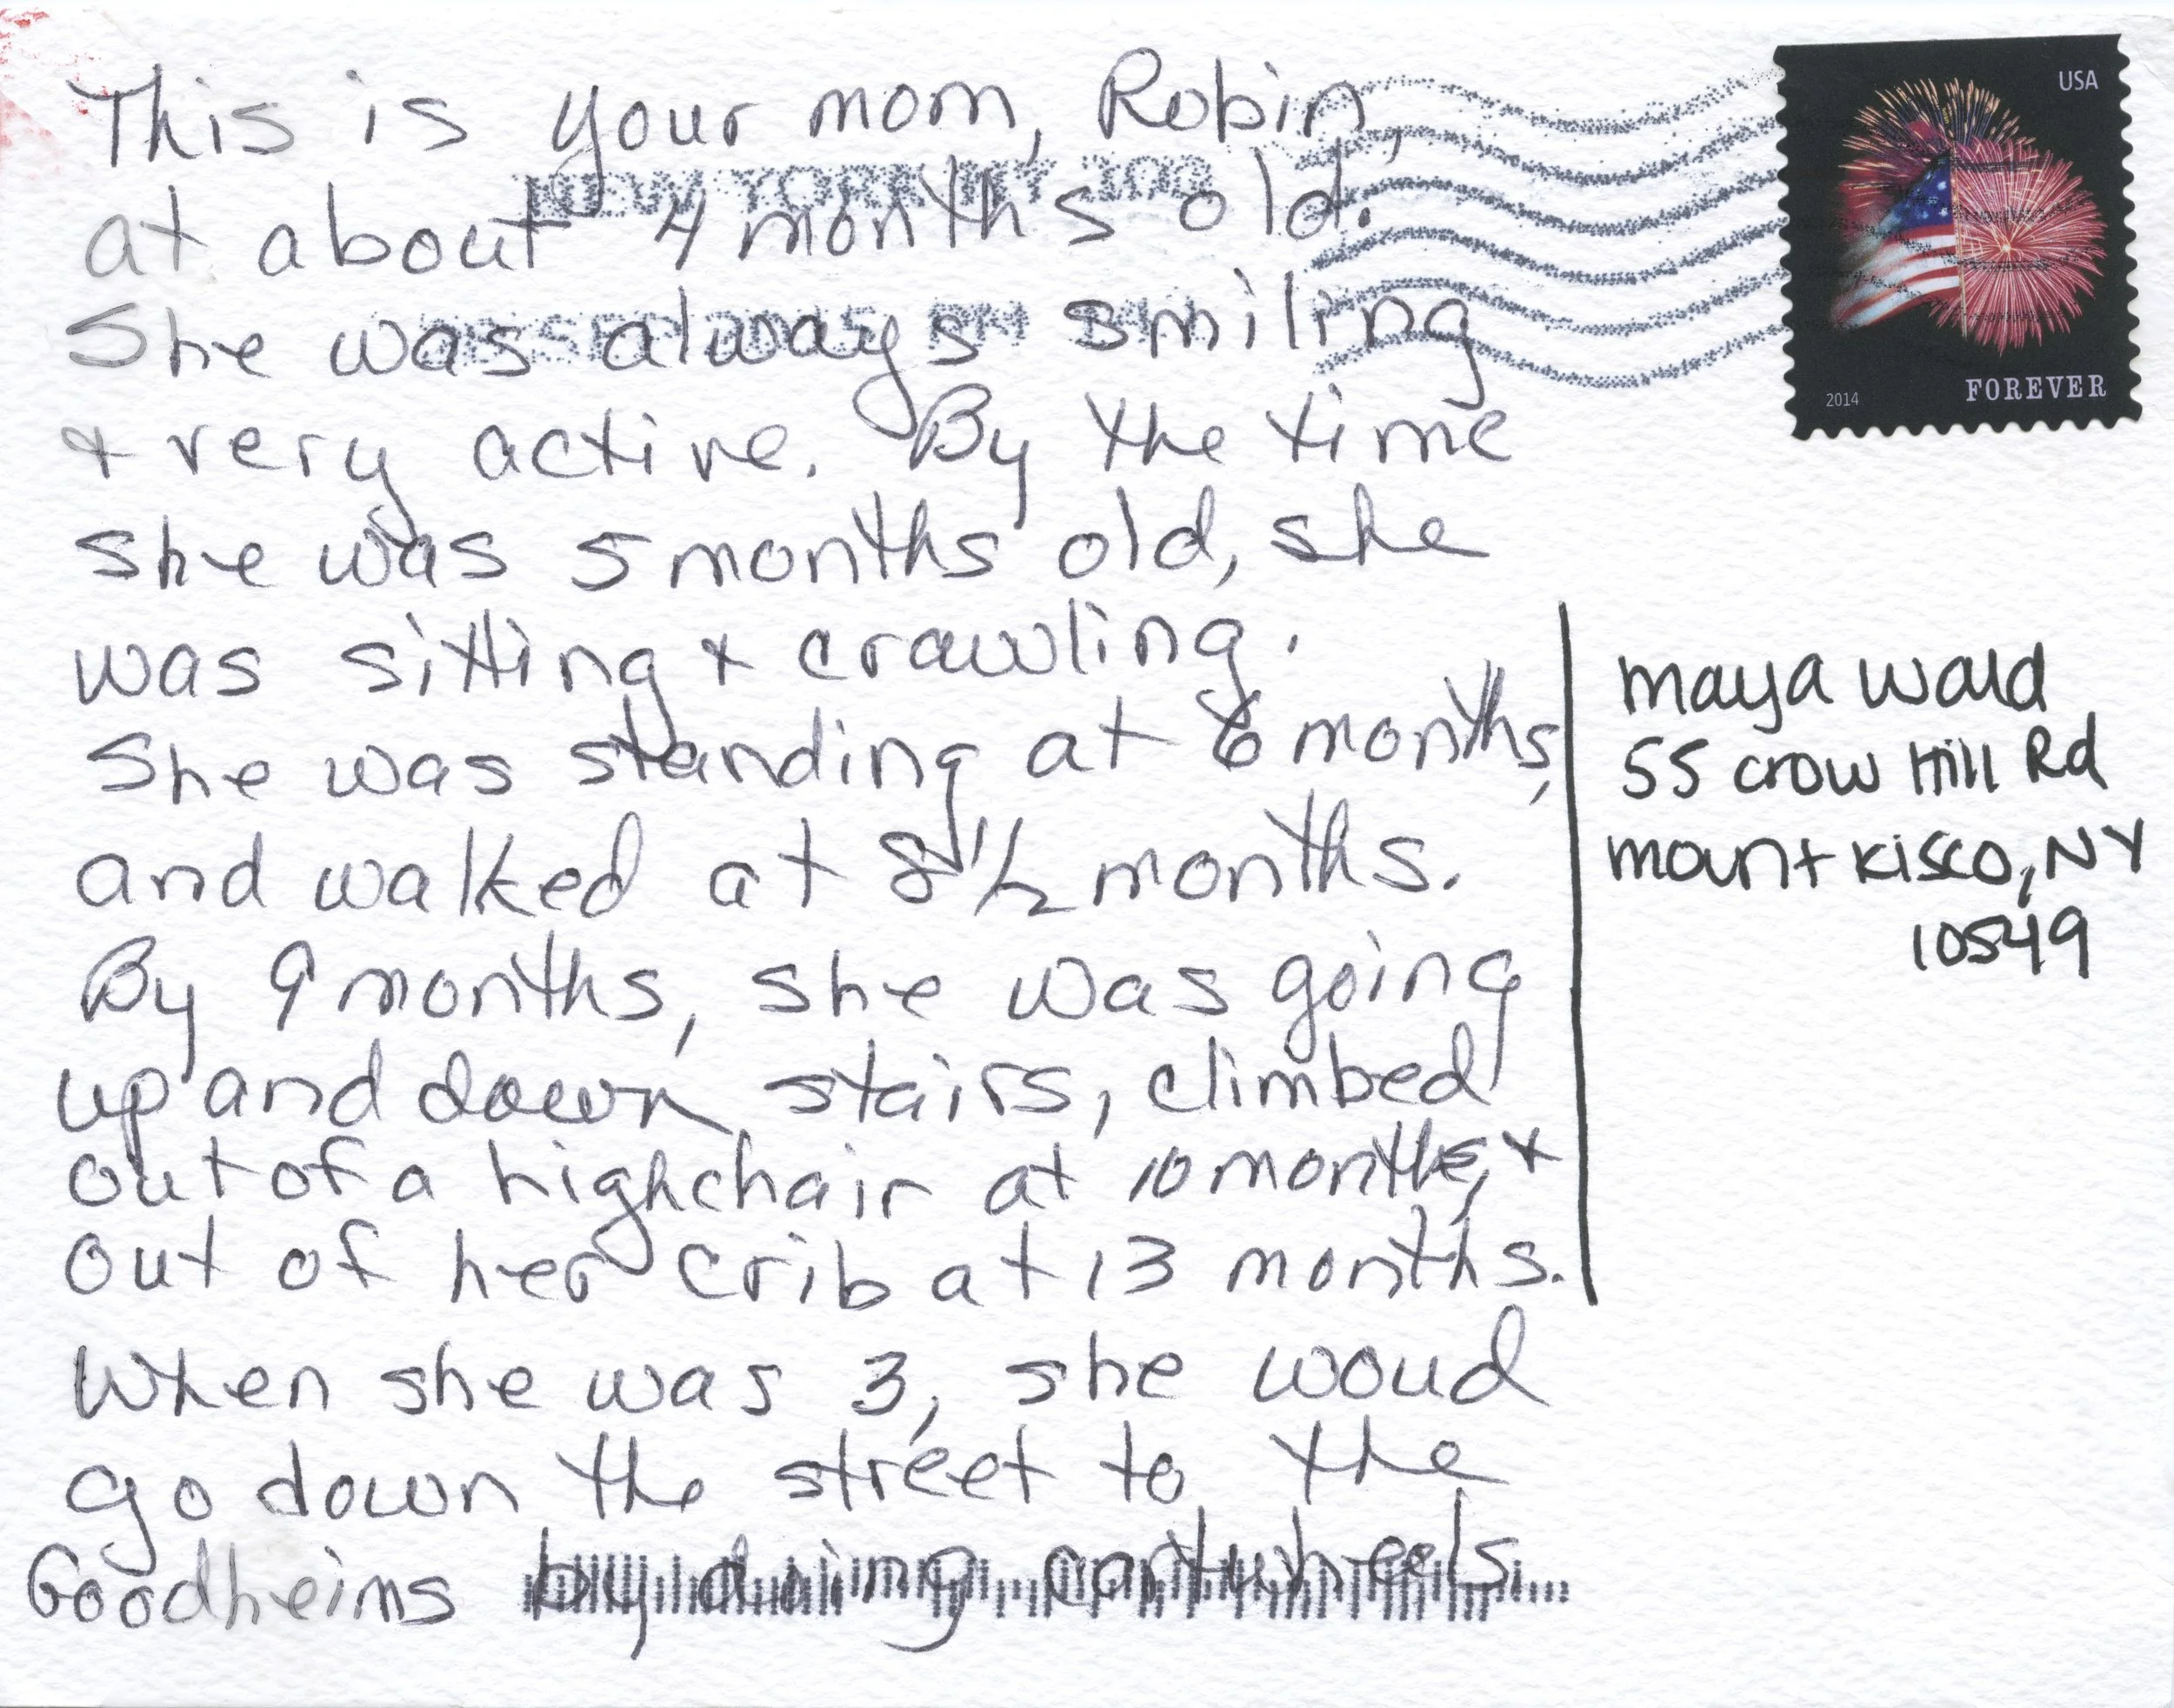 This is your mom, Robin,
at about 4 months old.
She was always smiling
& very active. By the time
she was 5 months old, she
was sitting & crawling.
She was standing at 6 months,
and walked at 8 1/2 months.
By 9 months, she was going
up and down stairs, climbed
out of a highchair at 10 months, &
out of her crib at 13 months.
When she was 3, she woud
go down the street to the
Goodheims by doing cartwheels.
NEW YORK NY 100
USA
2014 FOREVER
maya wald
55 crow Hill Rd
mount Kisco, NY
10549